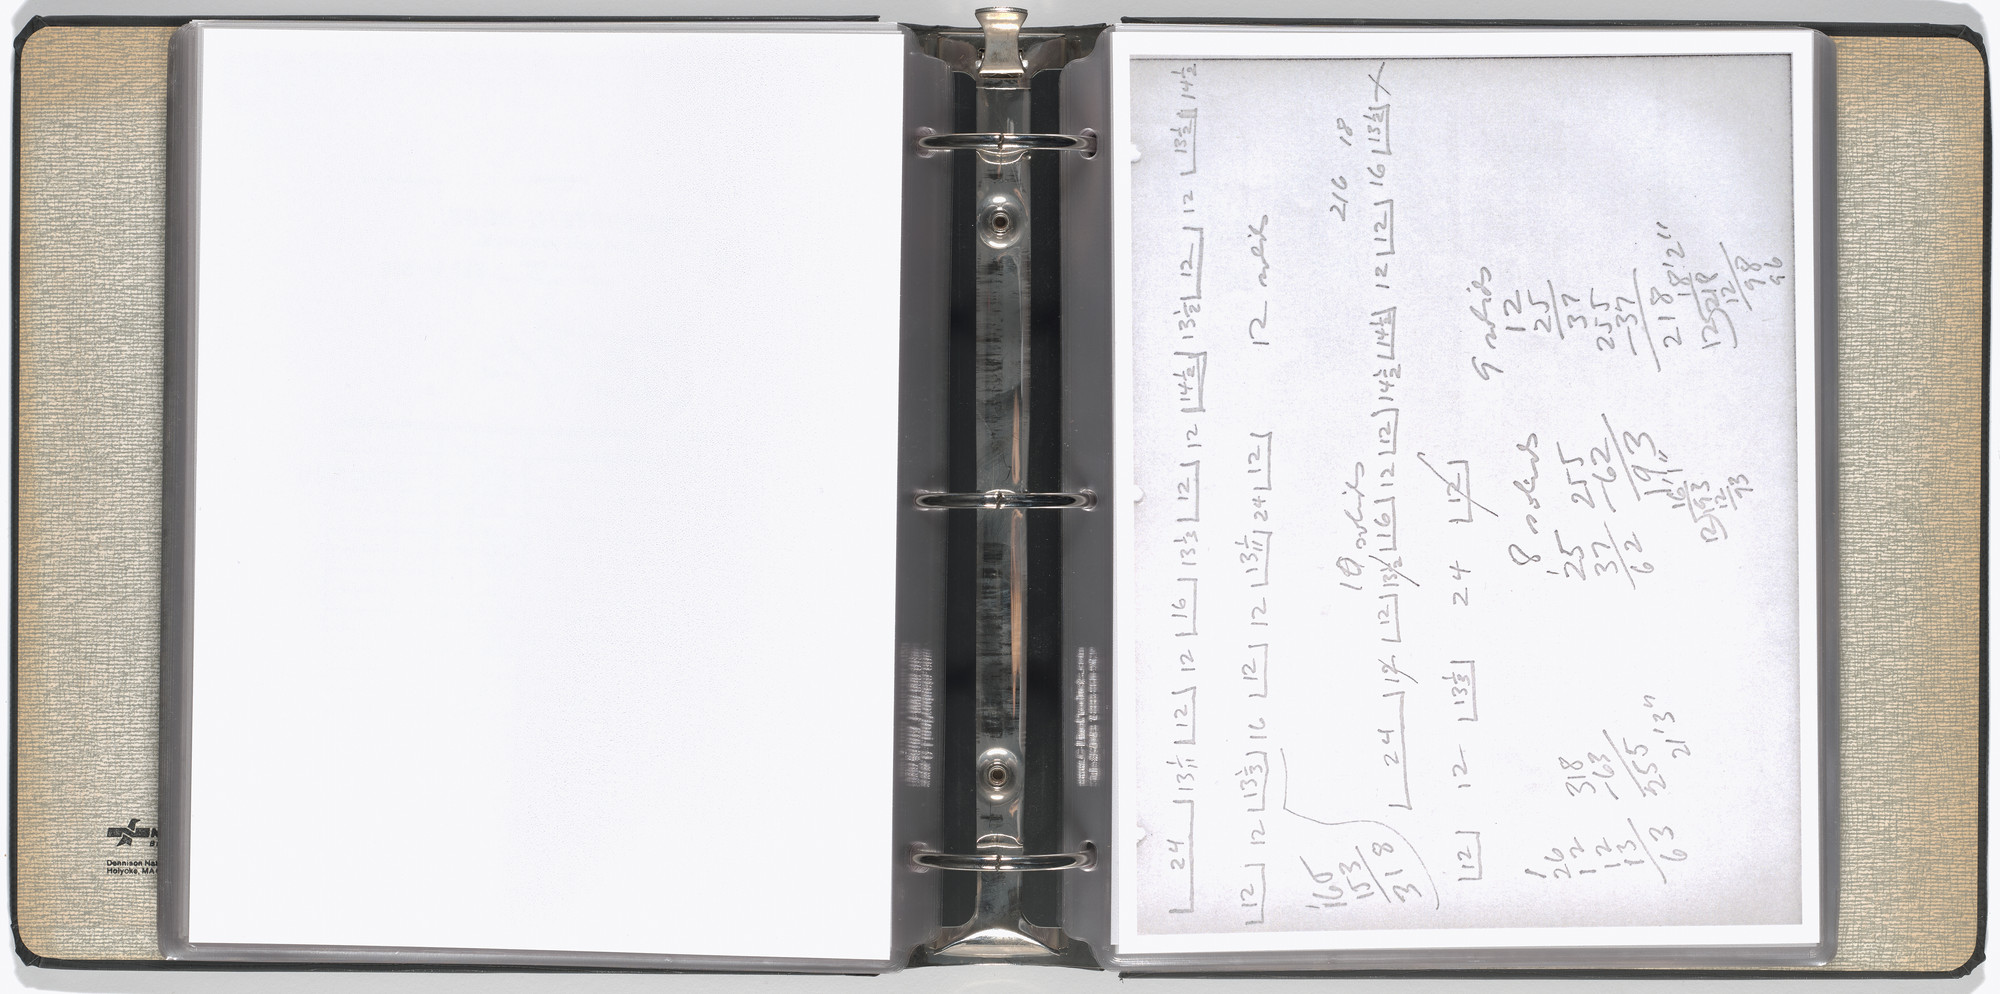 24 13 1/2 12 12 16 13 1/2 12 12 14 1/2 13 1/2 12 12 13 1/2 14 1/2
12 12 13 1/2 16 12 12 13 1/2 24 12 12 solids
165
153
318
10 solids 216 18
24 12 12 13 1/2 16 12 12 14 1/2 14 1/2 12 12 16 13 1/2
12 12 13 1/2 24 12
9 solids
12
25
37
255
-37
218
18'2"
12 218
12
98
96
8 solids
25
37
62
255
-62
193
16'1"
12 193
12
73
26
12
12
13
63
318
-63
255
21'3"
Dennison Nat
Holyoke, MA